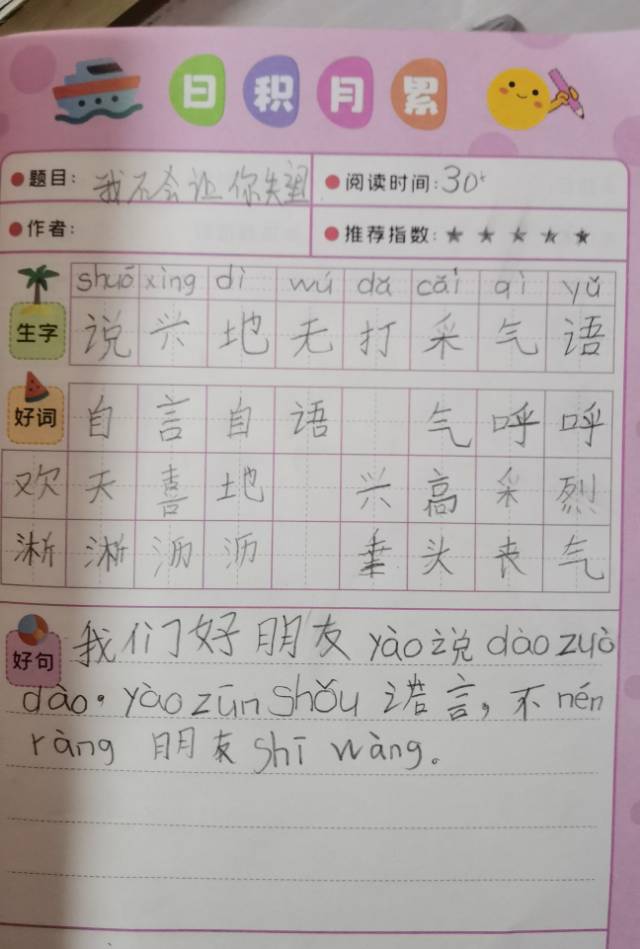 日积月累
题目：我不会让你失望 阅读时间：30+
作者： 推荐指数：★ ★ ★ ★ ★
shuō xìng dì wú dǎ cǎi qì yǔ
生字 说 兴 地 无 打 采 气 语
好词 自言自语 气呼呼
欢天喜地 兴高采烈
淅淅沥沥 垂头丧气
好句 我们好朋友yào说dàozuò
dào。yàozūnshǒu诺言，不nén
ràng朋友shīwàng。